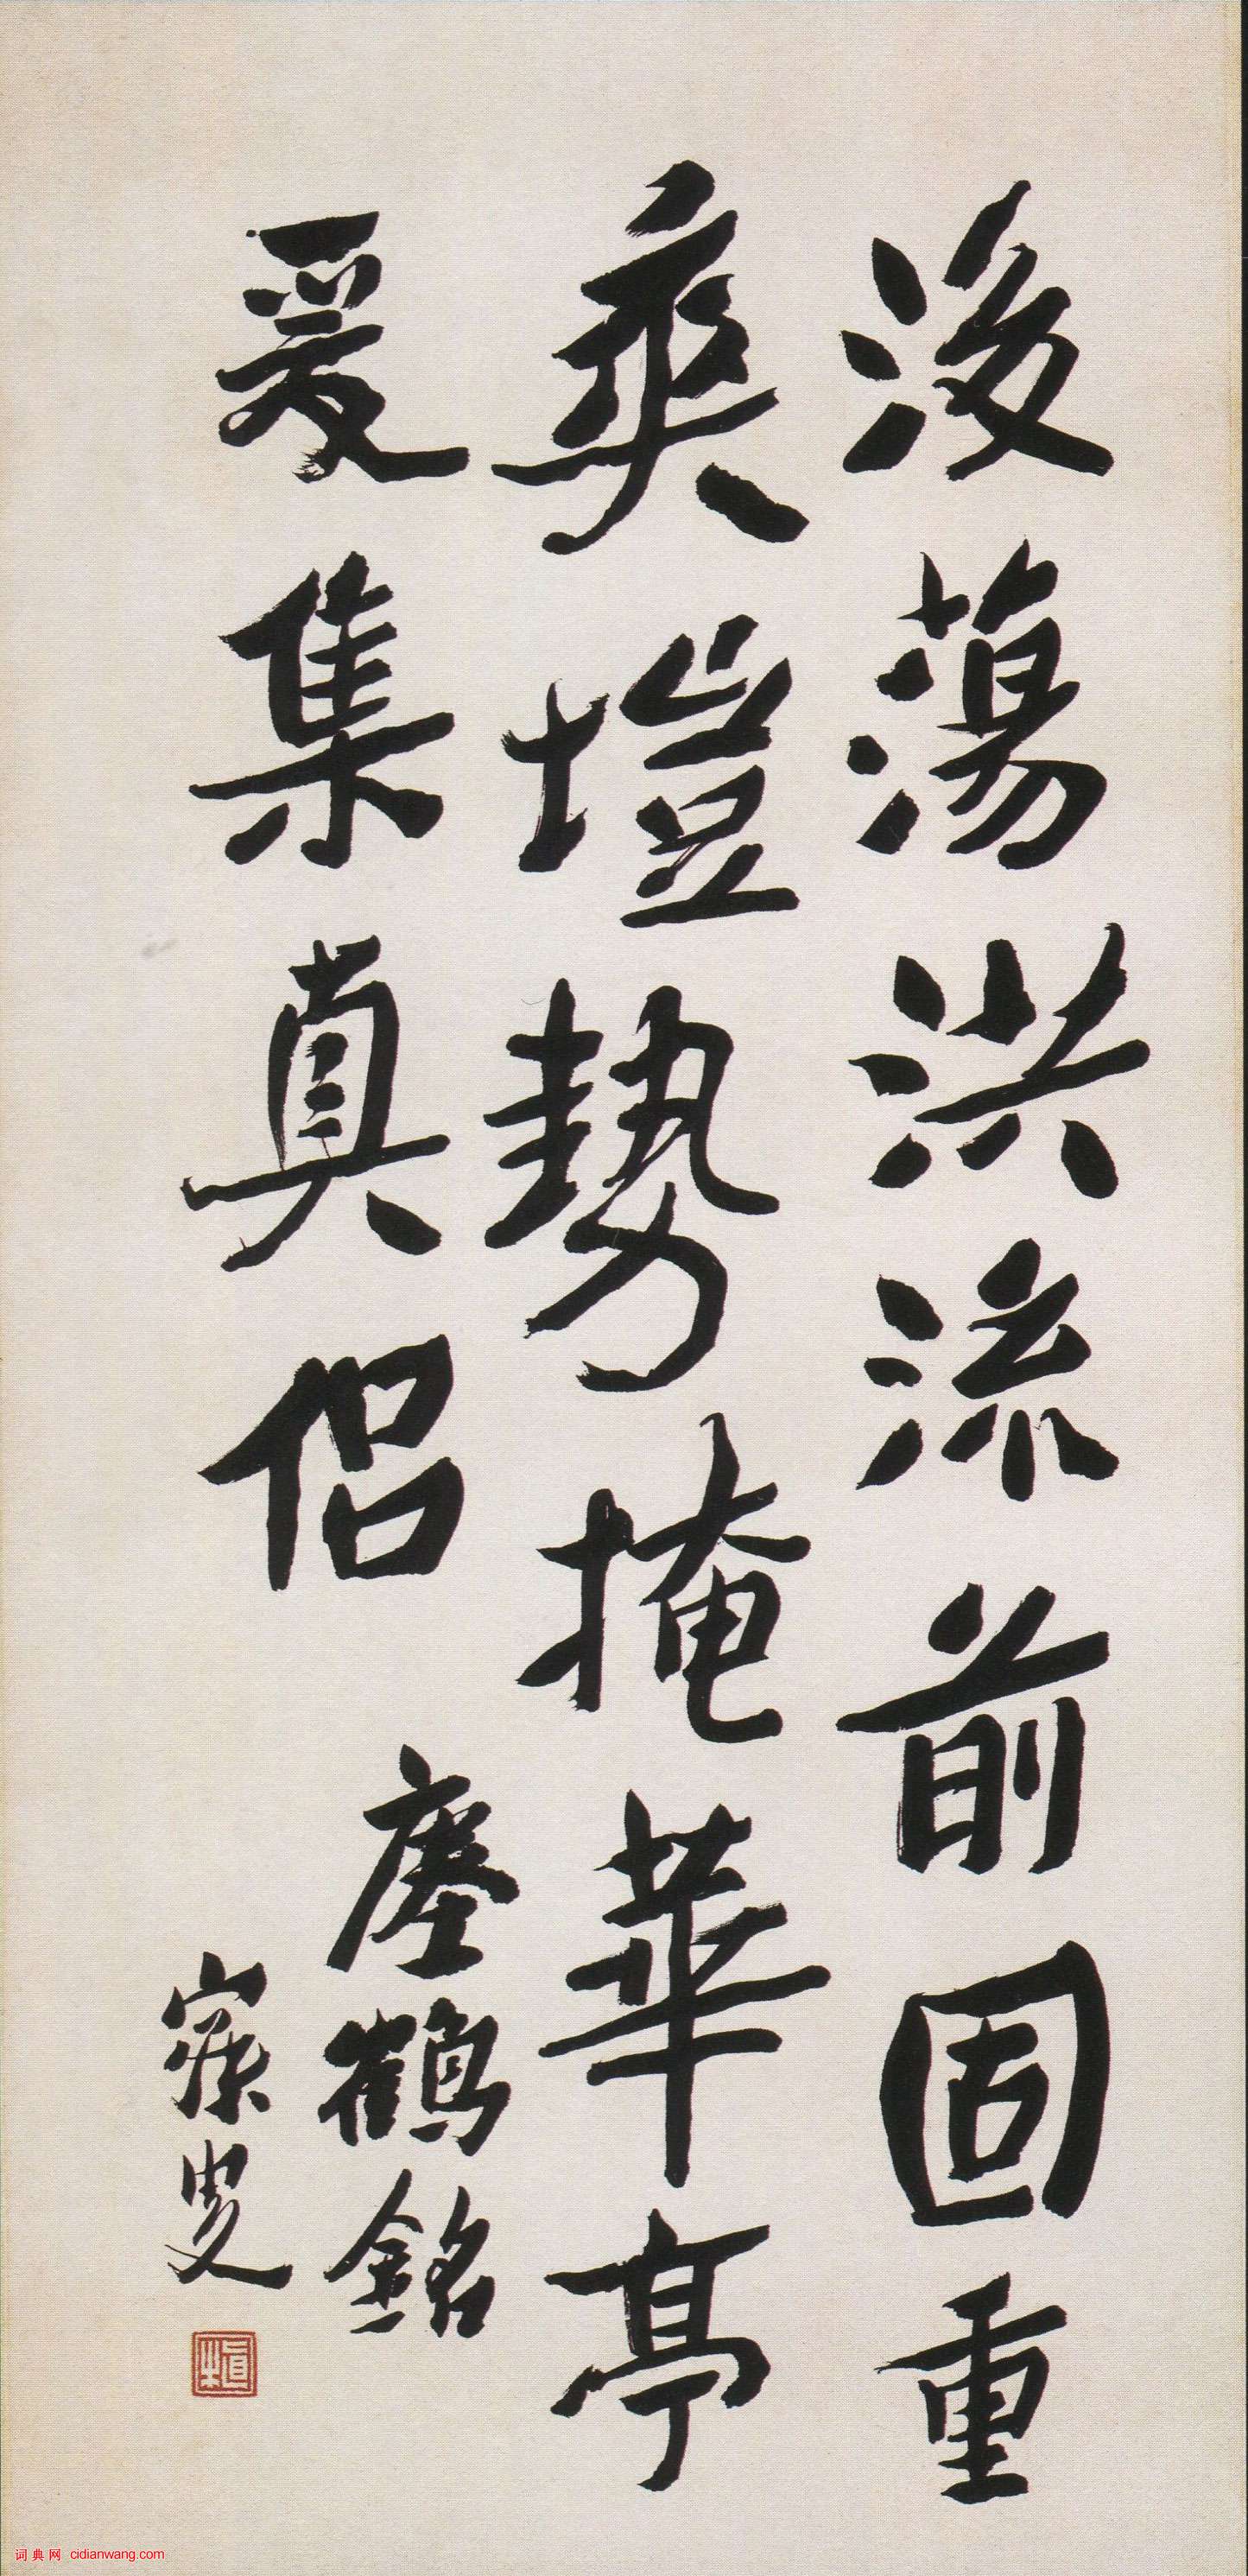 後蕩洪流前固重
爽塏勢掩華亭
爰集真侶
瘞鶴銘
寐叟
词典网 cidianwang.com